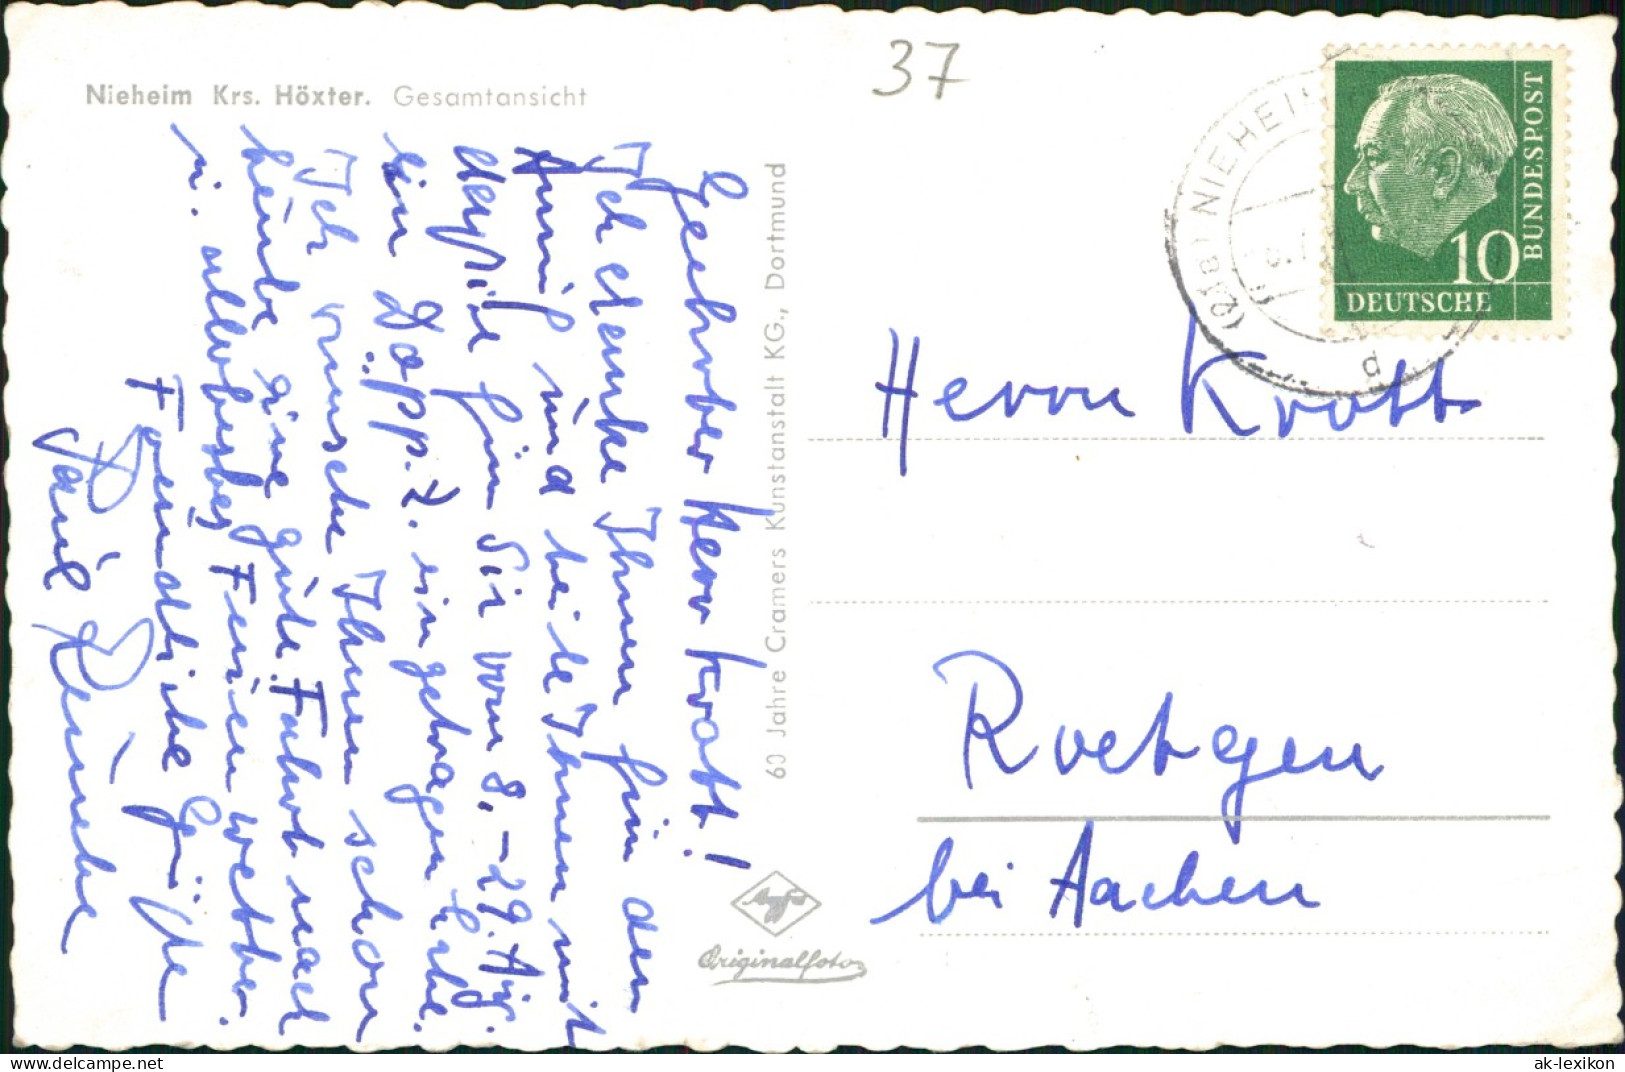 Nieheim Krs. Höxter. Gesamtansicht
37
Geehrter Herr Krott!
Ich danke Ihnen für den
Anruf und teile Ihnen mit
daß ich für Sie vom 8.-29. Aug.
ein Dopp. Z. eingetragen habe.
Ich wünsche Ihnen schon
heute eine gute Fahrt nach
u. allerbestes Ferienwetter.
Freundliche Grüße
Paul Reineke
60 Jahre Cramers Kunstanstalt KG., Dortmund
Agfa
Originalfoto
(21b) NIEHEIM
d
BUNDESPOST
10
DEUTSCHE
Herrn Krott
Roetgen
bei Aachen
Nieheim
ak-lexikon